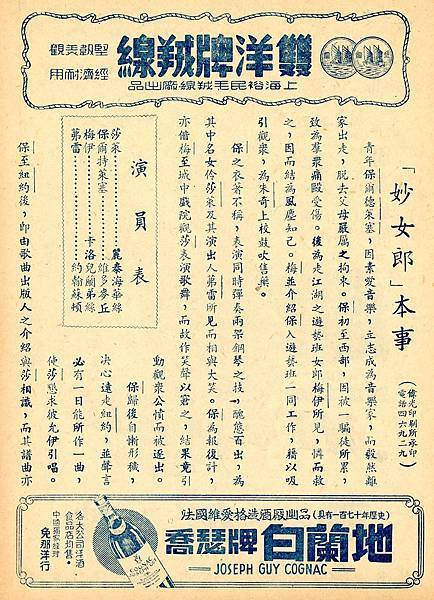 雙洋牌羢線
上海裕民毛羢線廠出品
堅靱美觀
經濟耐用
「妙女郎」本事
(偉光印刷所承印
電話四六九二九)
青年保爾德萊塞,因素愛音樂,立志成為音樂家,而毅然離
家出走,脫去父母嚴厲之拘束。保初至西部,因被一騙徒所累,
致為羣衆痛毆受傷。後為走江湖之遊藝班女郎梅伊所見,憐而救
之,因而結為風塵知己。梅並介紹保入遊藝班一同工作,藉以吸
引觀衆,為朱奇上校鼓吹售藥。
保之衣著不稱,表演同時彈奏兩架鋼琴之技,醜態百出,為
其中名女伶莎萊及其演出人弟雷所見而相與大笑。保為報復計,
亦偕梅至城中戲院觀莎表演歌舞,而故作笑聲以窘之,結果竟引
動觀衆公憤而被逐出。
保歸後自慚形穢,
決心遠走紐約,並聲言
必有一日能所作一曲,
使莎懇求彼允伊引唱。
演員表
莎萊…………麗泰海華絲
保爾特萊塞…………維多麥丘
梅伊…………卡洛兒蘭弟絲
弟雷…………約翰蘇頓
保至紐約後,即由歌曲出版人之介紹與莎相識,而其譜曲亦
法國維愛格造酒廠出品(具有一百七十年歷史)
喬瑟牌白蘭地
JOSEPH GUY COGNAC
各大公司洋酒
食品店均售·
中國獨家經理
免那洋行
COGNAC